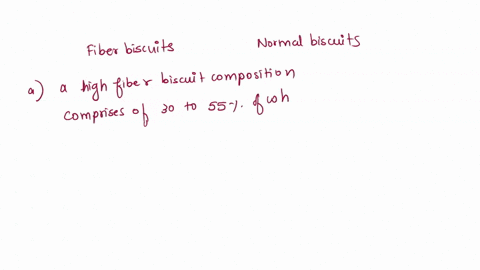 Fiber biscuits Normal biscuits
a) a high fiber biscuit composition
comprises of 30 to 55%. of wh